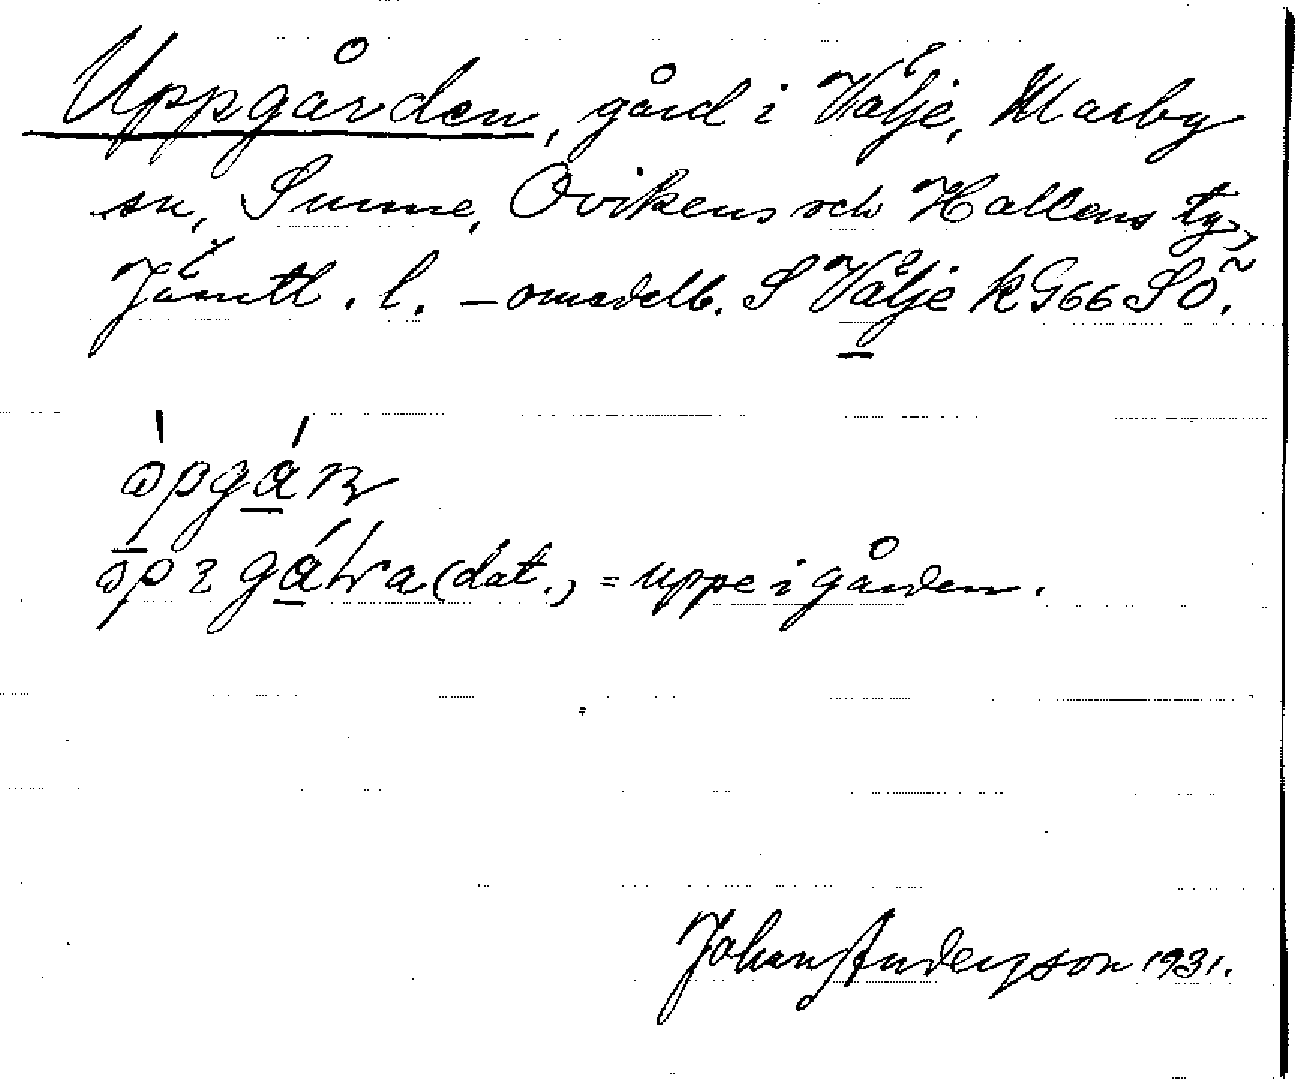 Uppgården, gård i Välje, Marby
sn, Sunne, Ovikens och Hallens tg,
Jämtl. l. – omedelb. S Välje k G66 SÖ.
òpgá
(dat.) = uppe i gården.
Johan Anderson 1931.